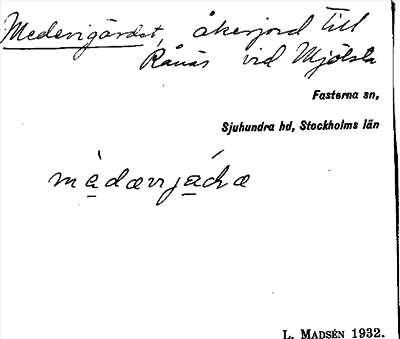 Medevigärdet, åkerjord till
Rånäs vid Mjölsta
Fasterna sn,
Sjuhundra hd, Stockholms län
L. MADSÉN 1932.